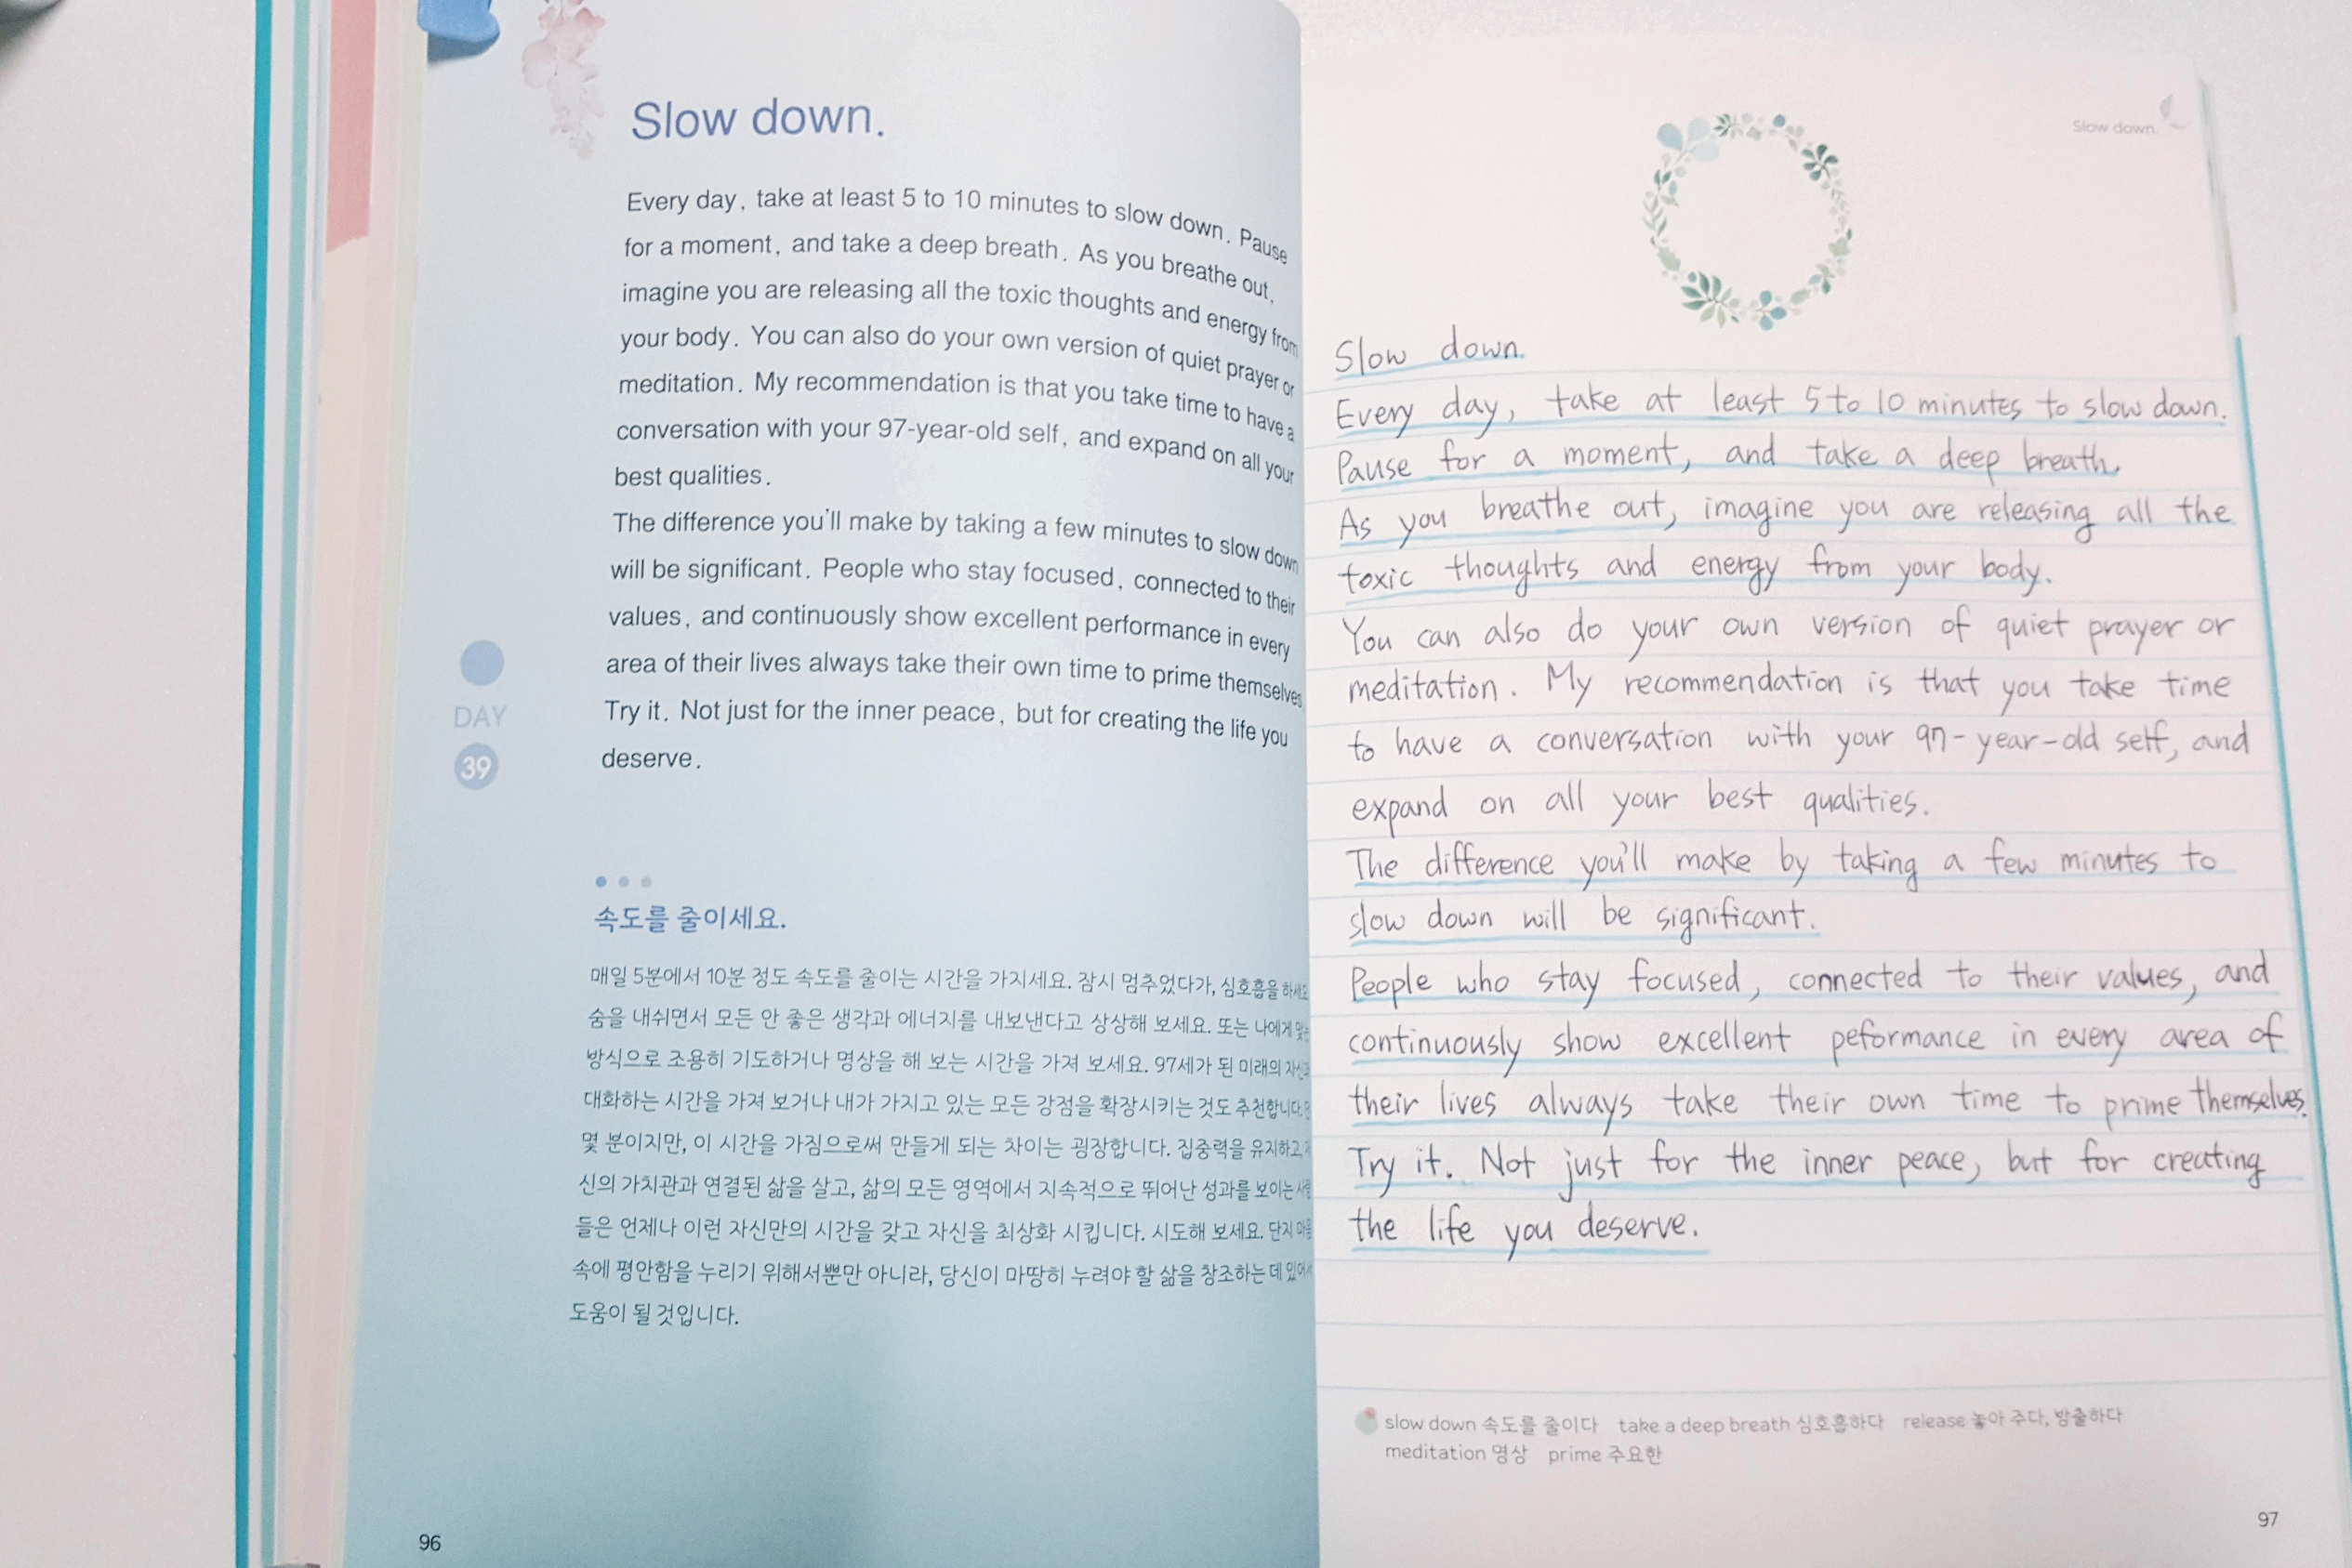 Slow down.
Every day, take at least 5 to 10 minutes to slow down. Pause
for a moment, and take a deep breath. As you breathe out,
imagine you are releasing all the toxic thoughts and energy from
your body. You can also do your own version of quiet prayer or
meditation. My recommendation is that you take time to have a
conversation with your 97-year-old self, and expand on all your
best qualities.
The difference you'll make by taking a few minutes to slow down
will be significant. People who stay focused, connected to their
values, and continuously show excellent performance in every
area of their lives always take their own time to prime themselves.
Try it. Not just for the inner peace, but for creating the life you
deserve.
DAY
39
속도를 줄이세요.
매일 5분에서 10분 정도 속도를 줄이는 시간을 가지세요. 잠시 멈추었다가, 심호흡을 하세요.
숨을 내쉬면서 모든 안 좋은 생각과 에너지를 내보낸다고 상상해 보세요. 또는 나에게 맞는
방식으로 조용히 기도하거나 명상을 해 보는 시간을 가져 보세요. 97세가 된 미래의 자신과
대화하는 시간을 가져 보거나 내가 가지고 있는 모든 강점을 확장시키는 것도 추천합니다.
몇 분이지만, 이 시간을 가짐으로써 만들게 되는 차이는 굉장합니다. 집중력을 유지하고,
신의 가치관과 연결된 삶을 살고, 삶의 모든 영역에서 지속적으로 뛰어난 성과를 보이는 사람
들은 언제나 이런 자신만의 시간을 갖고 자신을 최상화 시킵니다. 시도해 보세요. 단지 마음
속에 평안함을 누리기 위해서뿐만 아니라, 당신이 마땅히 누려야 할 삶을 창조하는 데 있어서
도움이 될 것입니다.
96
Slow down.
Slow down.
Every day, take at least 5 to 10 minutes to slow down.
Pause for a moment, and take a deep breath.
As you breathe out, imagine you are releasing all the
toxic thoughts and energy from your body.
You can also do your own version of quiet prayer or
meditation. My recommendation is that you take time
to have a conversation with your 97-year-old self, and
expand on all your best qualities.
The difference you'll make by taking a few minutes to
slow down will be significant.
People who stay focused, connected to their values, and
continuously show excellent peformance in every area of
their lives always take their own time to prime themselves.
Try it. Not just for the inner peace, but for creating
the life you deserve.
slow down 속도를 줄이다 take a deep breath 심호흡하다 release 놓아 주다, 방출하다
meditation 명상 prime 주요한
97